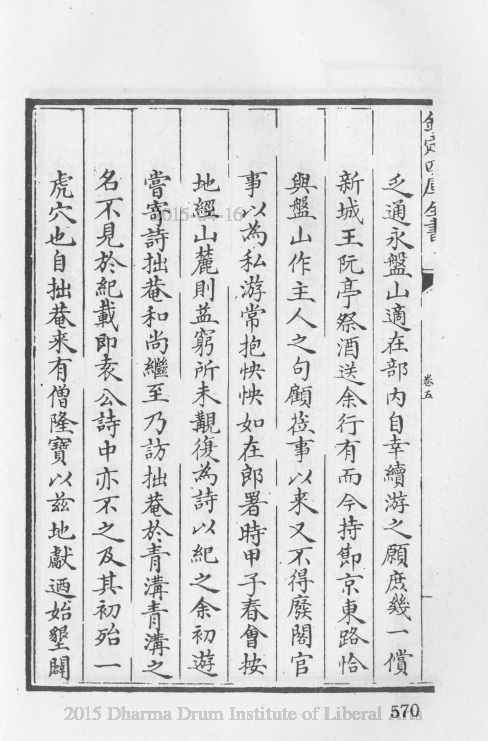 欽定四庫全書
卷五
乏通永盤山適在部内自幸續游之願庶幾一償
新城王阮亭祭酒送余行有而今持節京東路恰
與盤山作主人之句顧莅事以来又不得廢閣官
事以為私游常抱怏怏如在郎署時甲子春會按
地經山麓則葢窮所未覩復為詩以紀之余初遊
嘗寄詩拙菴和尚繼至乃訪拙菴於青溝青溝之
名不見於紀載即袁公詩中亦不之及其初殆一
虎穴也自拙菴来有僧隆寶以兹地獻迺始墾闢
2015-04-16
570
2015 Dharma Drum Institute of Liberal Arts